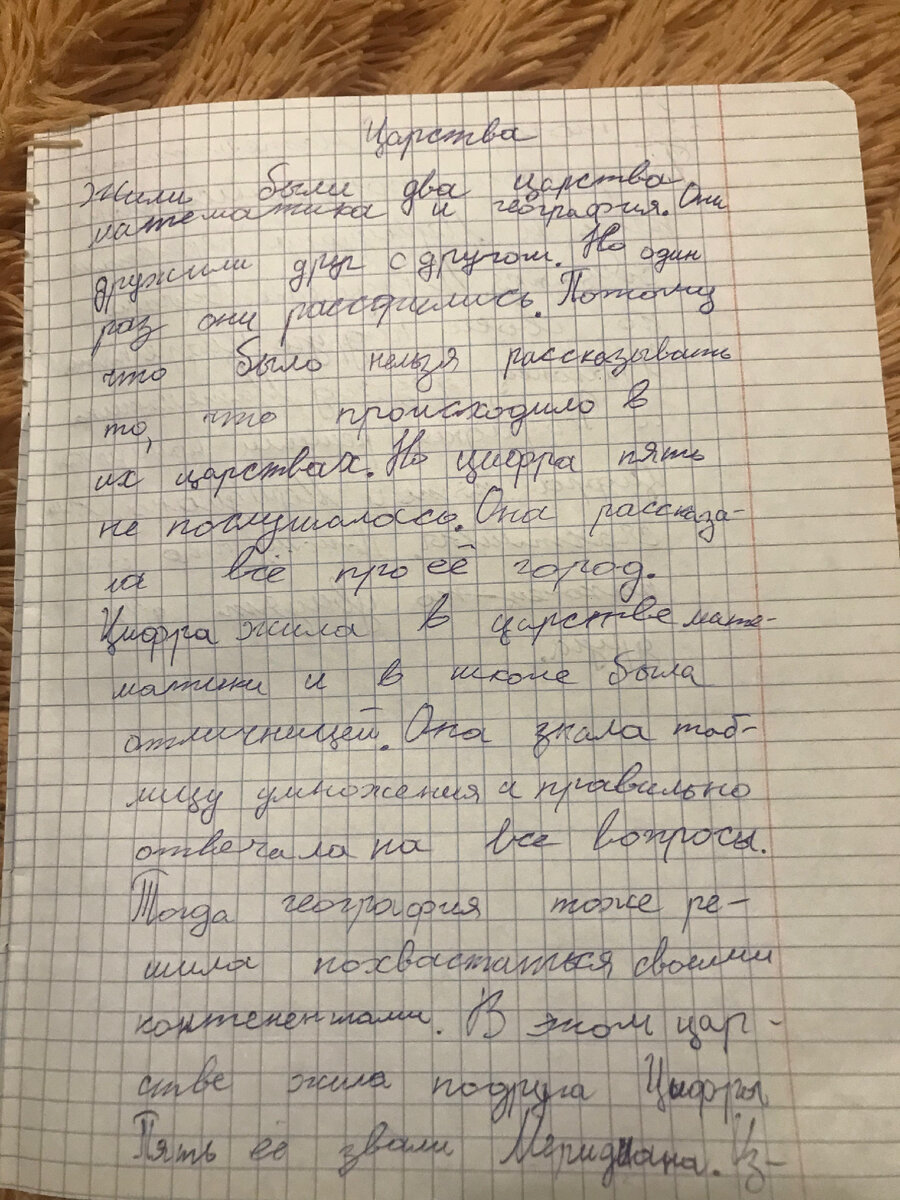 Царства
Жили были два царства
математика и география. Они
дружили друг с другом. Но один
раз они рассорились. Потому
что было нельзя рассказывать
то, что происходило в
их царствах. Но цифра пять
не послушалась. Она рассказа-
ла всё про её город.
Цифра жила в царстве мате-
матики и в школе была
отличницей. Она знала таб-
лицу умножения и правильно
отвечала на все вопросы.
Тогда география тоже ре-
шила похвастаться своими
контенентами. В этом цар-
стве жила подруга Цифры
Пять её звали Меридиана. Из-